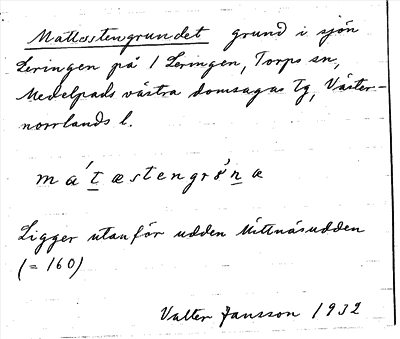 Mattostengrundet grund i sjön
Leringen på 1 Leringen, Torps sn,
Medelpads västra domsagas tg, Väster-
norrlands l.
Ligger utanför udden Mittnäsudden
(= 160)
Valter Jansson 1932